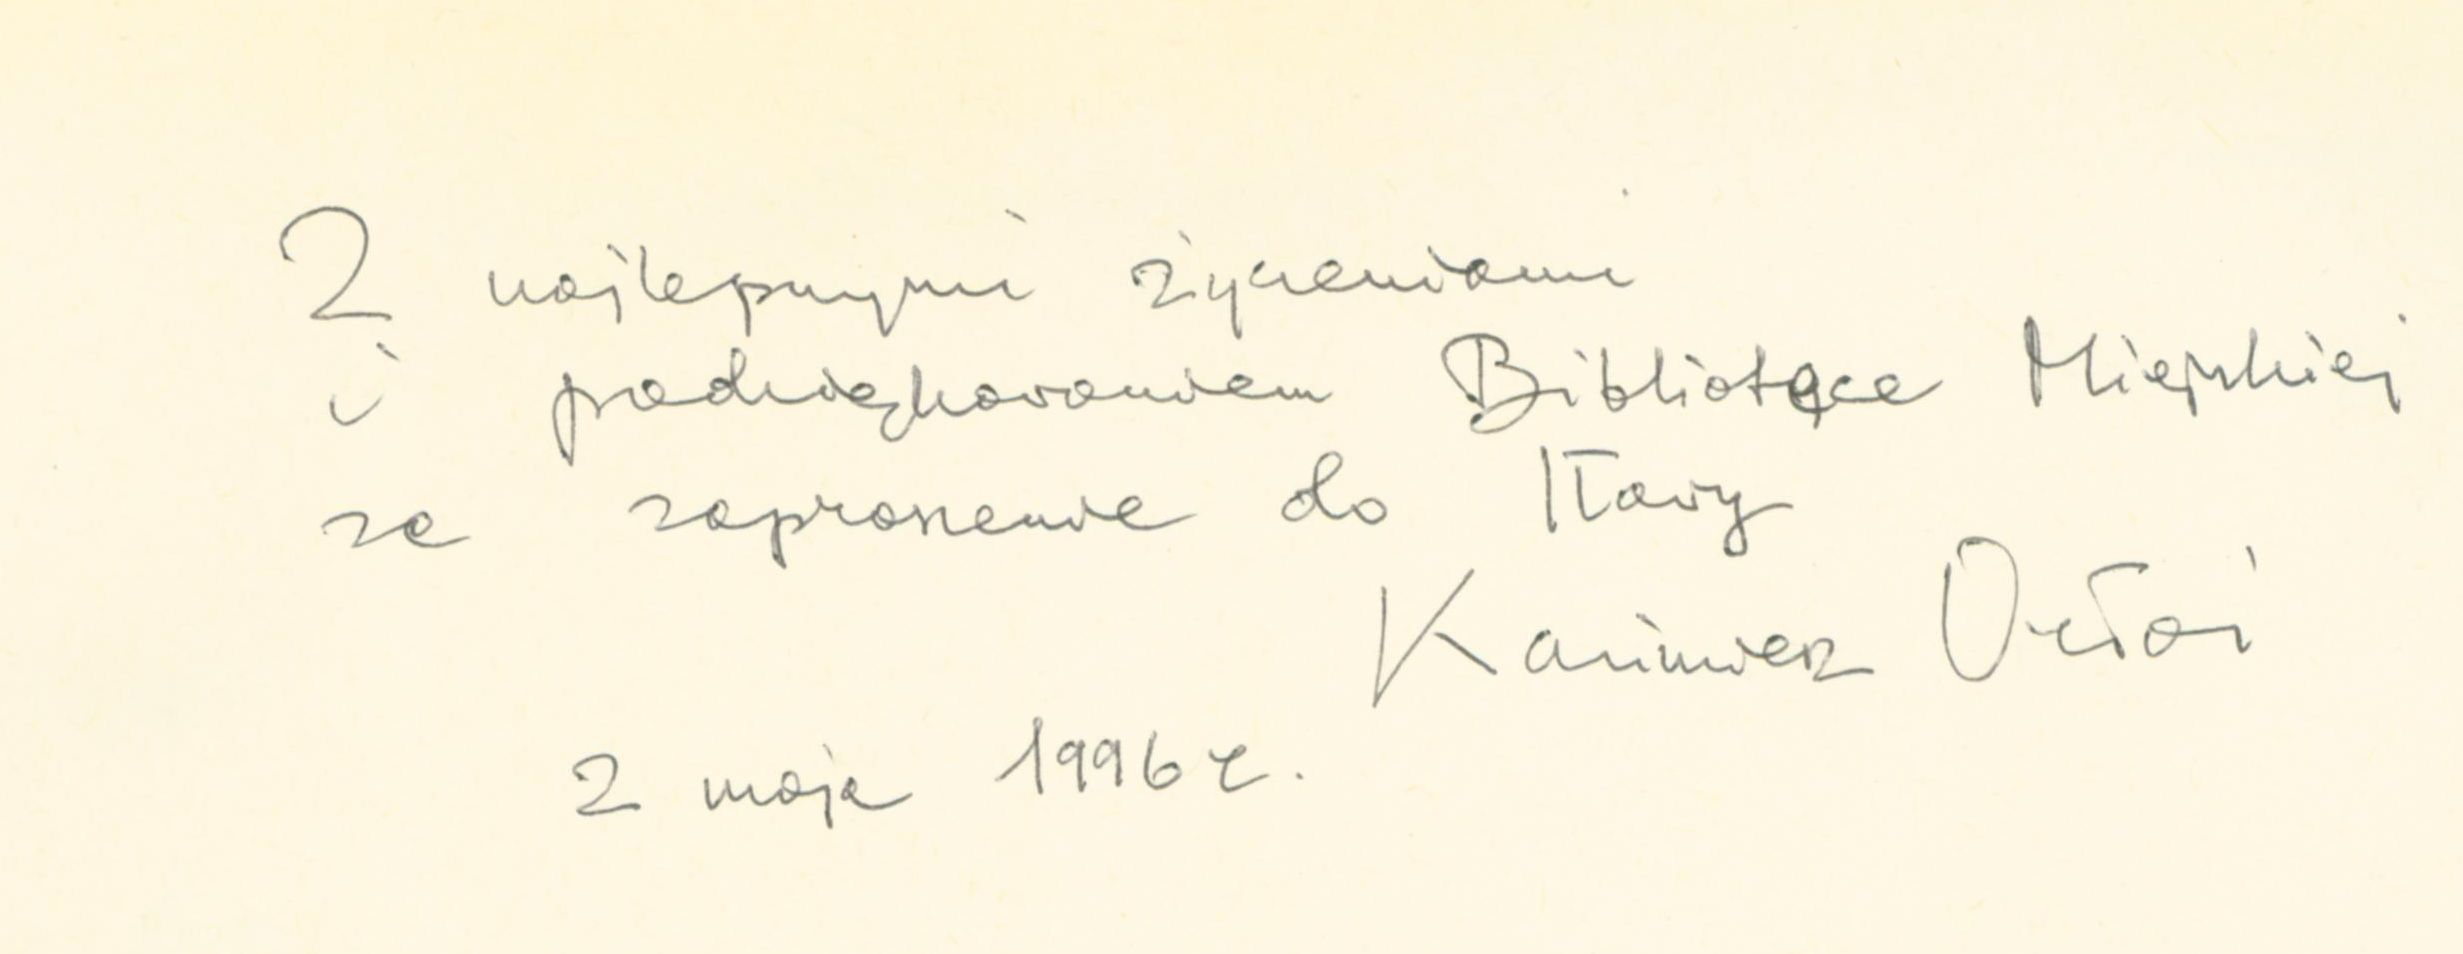 Z najlepszymi życzeniami
i podziękowaniem Bibliotece Miejskiej
za zaproszenie do Iławy
Kazimierz Orłoś
2 maja 1996 r.